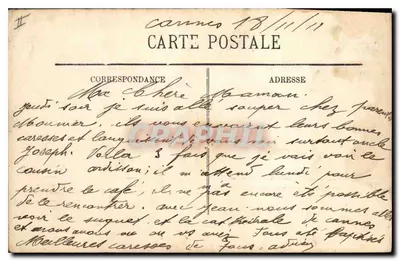 II
Cannes 18/11/11
CARTE POSTALE
CORRESPONDANCE
ADRESSE
Ma Chère Maman.
jeudi soir je suis allé souper chez parents
Mounier, ils vous envoient leurs bonnes
caresses et surtout oncle
Joseph. Voilà 3 fois que je vais voir le
cousin il m'attend lundi pour
prendre le café, il ne m'a pas encore été possible
de le rencontrer. avec Jean nous sommes allés
voir le suquet et la cathédrale de cannes
et avons nous ou vous avez tous été
Meilleures caresses de